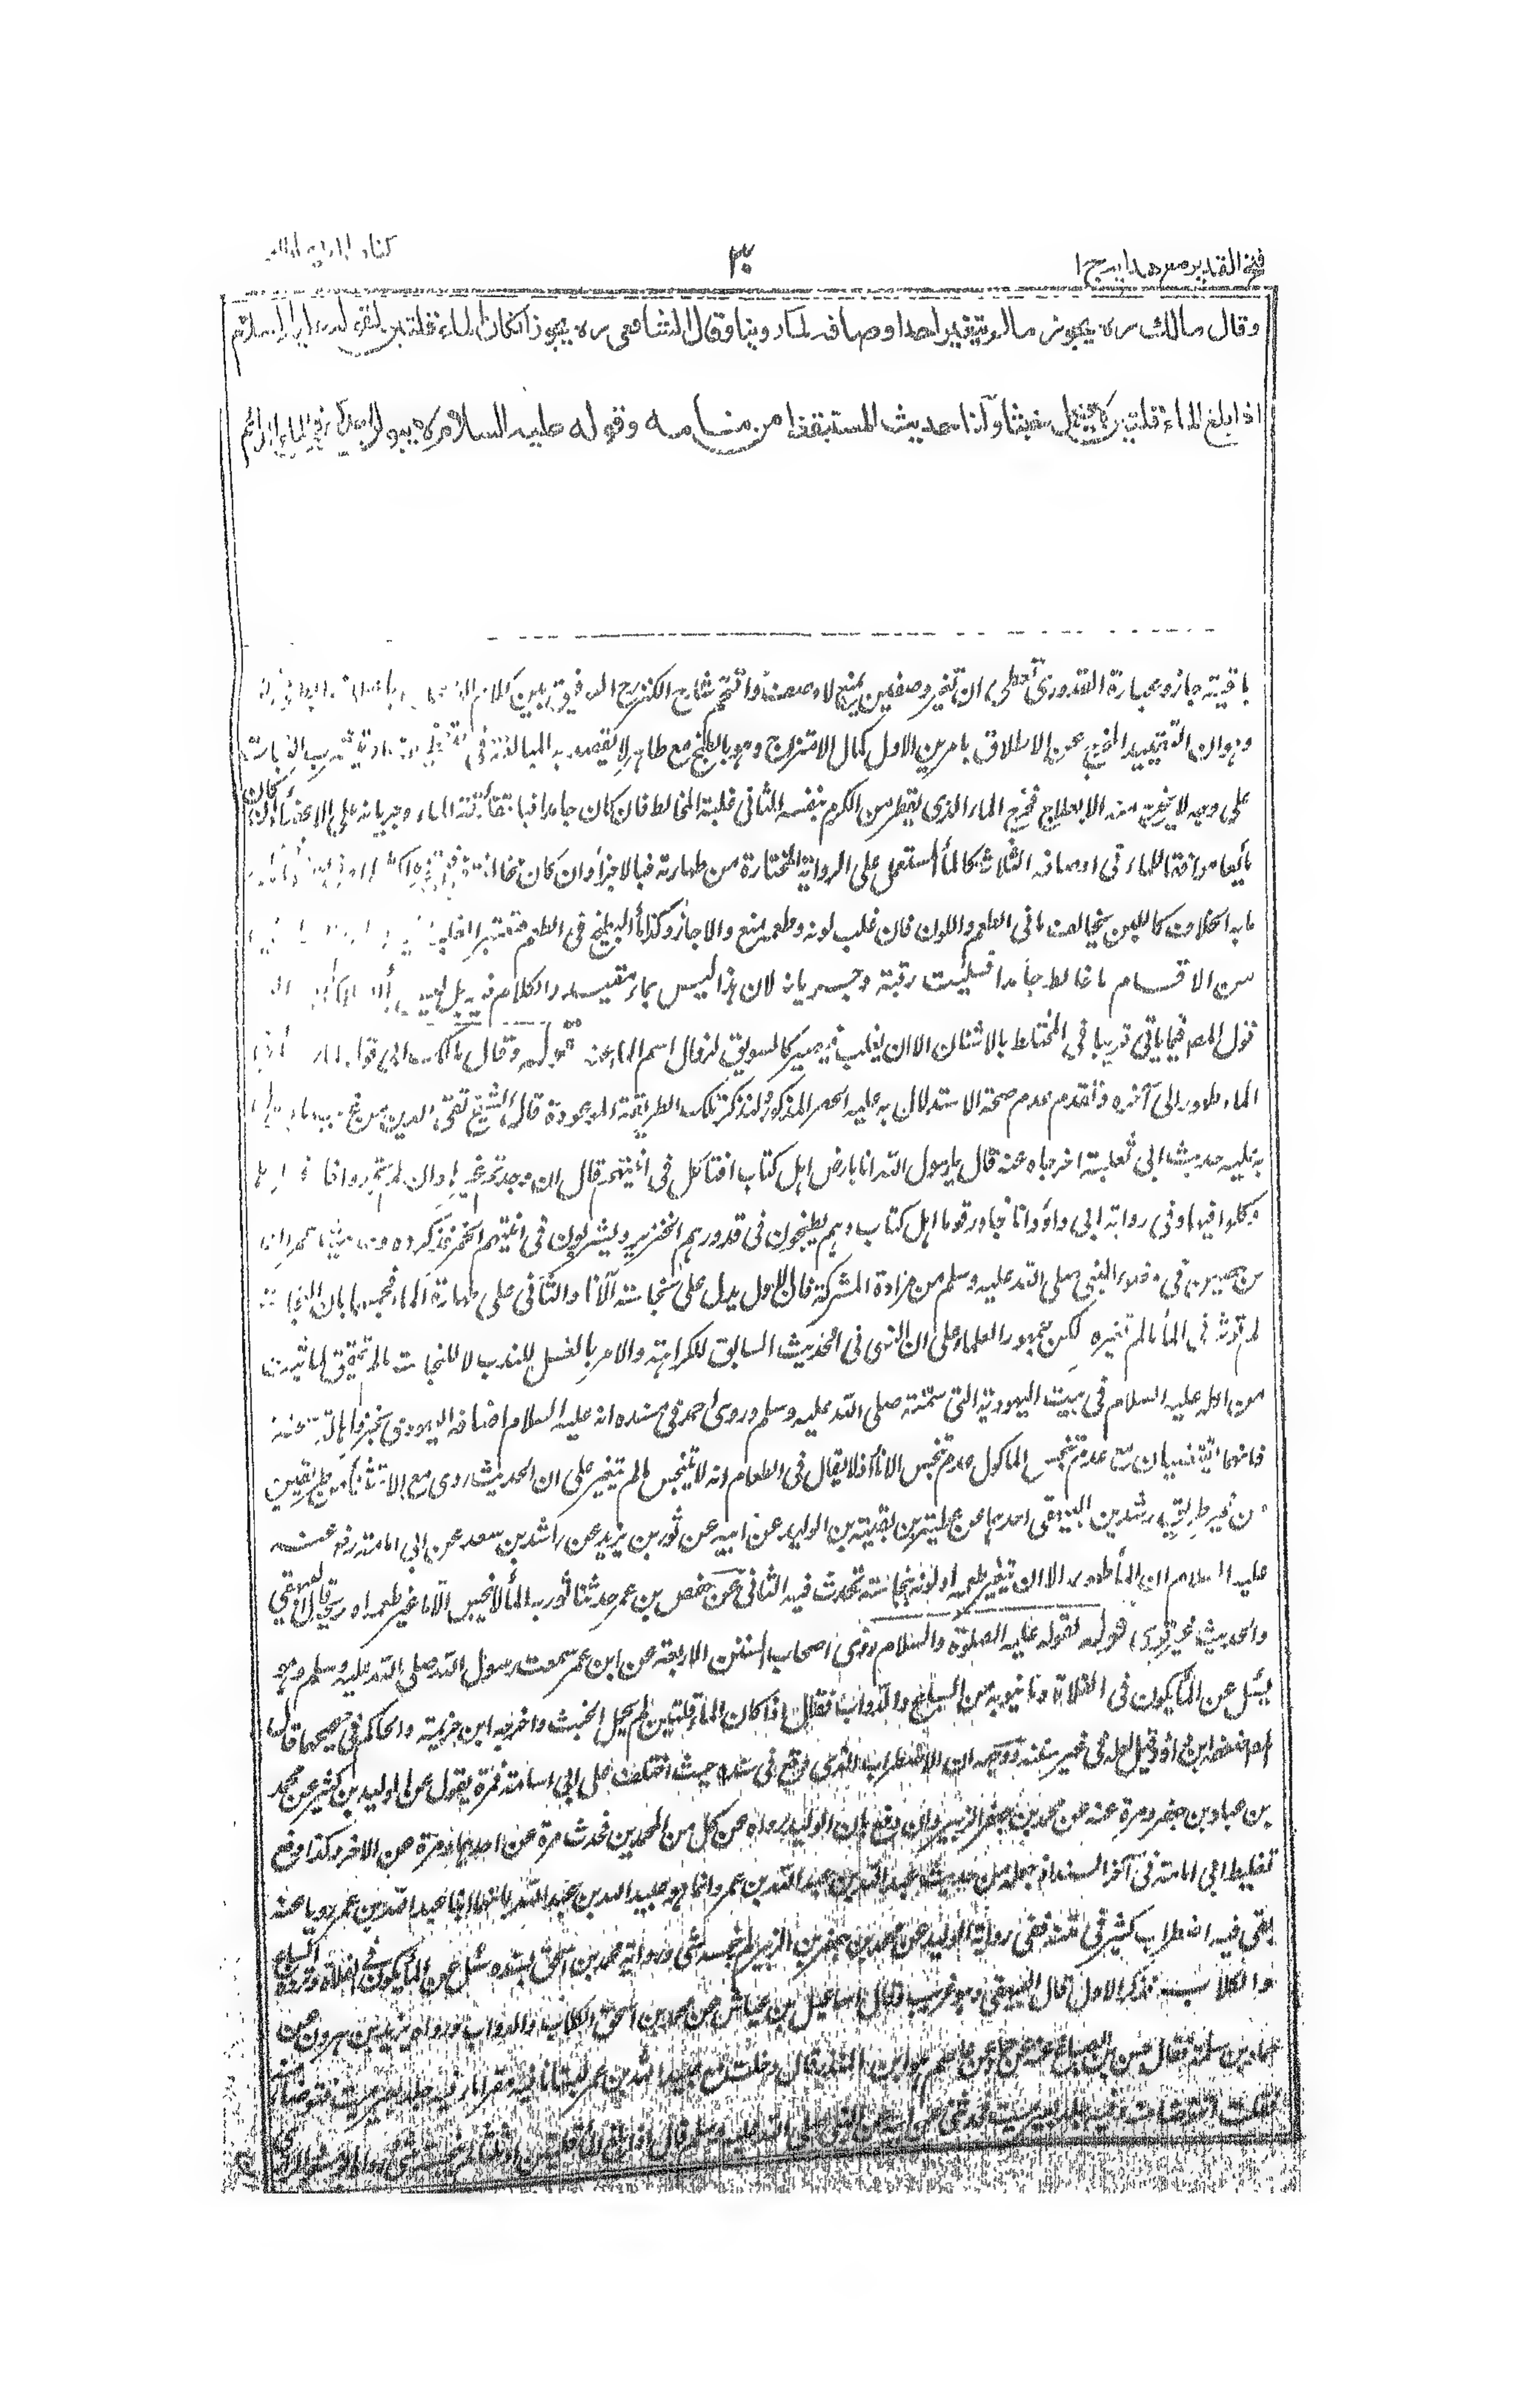 فتح القدير مع هدايه ج ١
٣٠
كتاب
وقال مالك ره يجوز مالم يتغير احد اوصافه لما روينا وقال الشافعى ره يجوز اذا كان الماء قلتين لقوله عليه السلام
اذا بلغ الماء قلتين لا يحتمل خبثا ولنا حديث المستيقظ من منامه وقوله عليه السلام لا يبولن احدكم فى الماء الدائم
باقيته جاز وعبارة القدورى تعطى ان تغير وصفين يمنع لا وصف واقتحم شارح الكنز رح التوفيق بين كلام
وهو ان التقييد المخرج عن الاطلاق بامرين الاول كمال الامتزاج وهو بالطبخ مع طاهر لا يقصد به المبالغة فى
على وجه لا يخرج منه الا بعلاج فخرج الماء الذى يقطر من الكرم بنفسه الثانى غلبة المخالط فان كان جامدا فبانتفاء رقة الماء وجريانه على الاعضاء وان كان
مائعا موافقا للماء فى اوصافه الثلاث كالماء المستعمل على الرواية المختارة من طهارته فبالاجزاء وان كان مخالفا
ما به الخلاف كاللبن يخالف ما فى الطعم واللون فان غلب لونه وطعمه منع والا جاز وكذا ماء البطيخ فى الطعم فتعتبر الغلبة
من الاقسام ما خالط جامدا فسلبت رقته وجريانه لان هذا ليس بماء مقيد والكلام فيه بل ليس
قول المصـ فيما ياتى قريبا فى المختلط بالاشنان الا ان يغلب فيصير كالسويق لزوال اسم الماء عنه قوله وقال مالك الى قوله
الماء طهور الى آخره وتقدم عدم صحة الاستدلال به عليه الحصر المذكور ولنذكر تلك الطريقة الموعودة قال الشيخ تقى الدين
به عليه حديث ابى ثعلبة اخرجاه عنه قال يا رسول الله انا بارض اهل كتاب افناكل فى آنيتهم قال ان وجدتم غيرها وان لم تجدوا
وكلوا فيها وفى رواية ابى داؤد انا نجاور قوما اهل كتاب وهم يطبخون فى قدورهم الخنزير ويشربون فى آنيتهم الخمر فذكره وحديث عمران
بن حصين فى وضوء النبى صلى الله عليه وسلم من مزادة المشركة فان الاول يدل على نجاسة الآنا والثانى على طهارة الماء فجمع بها بان النجاسة
لم تؤثر فى الماء مالم تغيره لكن جمهور العلماء على ان النهى فى الحديث السابق للكراهة والامر بالغسل للندب لا للنجاسة مالم تتحقق لما ثبت
من اكله عليه السلام فى بيت اليهودية التى سمته صلى الله عليه وسلم وروى احمد فى مسنده انه عليه السلام اضافه اليهودى بخبز واهالة سنخة
عدم تنجس الماكول عدم تنجس الاناء فلا يقال فى الطعام انه لا يتنجس مالم يتغير على ان الحديث روى مع الاستثناء من طريقين
من غير طريق رشدين البيهقى احدهما عن عطية بن بقية بن الوليد عن ابيه عن ثور بن يزيد عن راشد بن سعد عن ابى امامة رفـ عنه
عليه السلام ان الماء طهور الا ان تغير طعمه او لونه بنجاسة تحدث فيه الثانى عن حفص بن عمر حدثنا ثور به الماء لا ينجس الا ما غير طعمه او ريحه قال البيهقى
والحديث غير قوى قوله لقوله عليه الصلوة والسلام روى اصحاب السنن الاربعة عن ابن عمر سمعت رسول الله صلى الله عليه وسلم وهو
يسئل عن الماء يكون فى الفلاة وما ينوبه من السباع والدواب فقال اذا كان الماء قلتين لم يحمل الخبث واخرجه ابن خزيمة والحاكم فى صحيحهما قال
ان الاضطراب الذى وقع فى سنده حيث اختلف على ابى اسامة فمرة يقول عن الوليد بن كثير عن محمد
بن عباد بن جعفر ومرة عنه عن محمد بن جعفر بن الزبير وان دفع بان الوليد رواه عن كل من المحمدين فحدث مرة عن احدهما ومرة عن الآخر وكذا دفع
تغليط ابى اسامة فى آخر السند اذ جعله من حديث عبد الله بن عبد الله بن عمر وانما هو عبيد الله بن عبد الله بانهما ابنا عبد الله بن عمر رويا عنه
بقى فيه اضطراب كثير فى متنه ففى رواية الوليد عن محمد بن جعفر بن الزبير لم ينجسه شئ ورواية محمد بن اسحق بسنده سئل عن الماء يكون فى الفلاة وترده السباع
والكلاب فذكر الاول قال البيهقى وهو غريب وقال اسماعيل بن عياش عن محمد بن اسحق الكلاب والدواب ورواه يزيد بن هرون عن
حماد بن سلمة فقال حسن بن الصباح عنه عن حماد عن عاصم هو ابن المنذر قال دخلت مع عبيد الله بن عمر بستانا فيه مقراة ماء فيه جلد بعير ميت فتوضا منه
فقلت اتتوضا منه وفيه جلد بعير ميت فحدثنى عن ابيه عن النبى صلى الله عليه وسلم قال اذا بلغ الماء قلتين او ثلثا لم ينجسه شئ